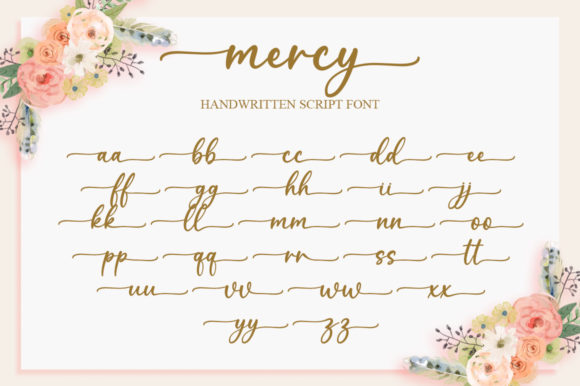 mercy
HANDWRITTEN SCRIPT FONT
aa bb cc dd ee
ff gg hh ii jj
kk ll mm nn oo
pp qq rr ss tt
uu vv ww xx
yy zz